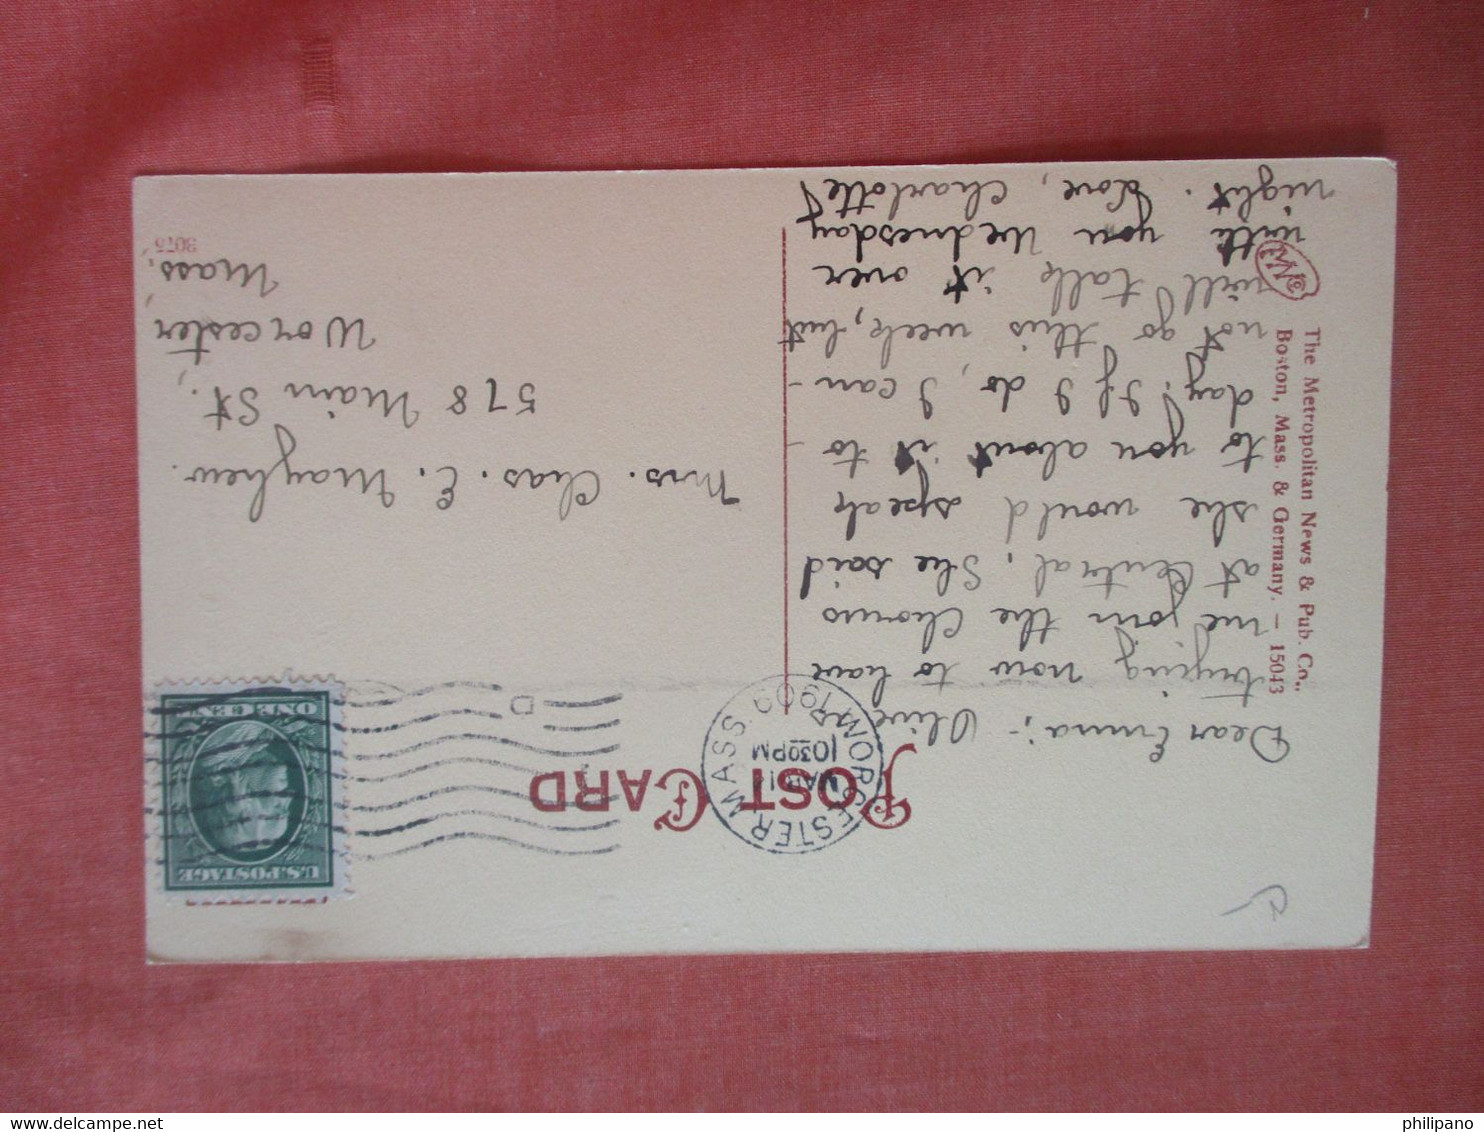 POST CARD
WORCESTER, MASS.
MAR 14
10 30 PM
1909
D
U.S. POSTAGE
ONE CENT
Dear Emma;- Olive is
trying now to have
me join the Chorus
at Central, She said
she would speak
to you about it to-
day. If I do, I can-
not go this week, but
will talk it over
with you Wednesday
night. Love, Charlotte
Mrs. Chas. E. Mayhew.
578 Main St.,
Worcester,
Mass.
The Metropolitan News & Pub. Co.,
Boston, Mass. & Germany. — 15043
3075
delcampe.net
philipano